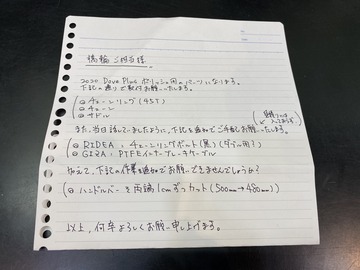 2020 Dove Plus ポリッシュ用のパーツになります。
下記の通り取付お願いいたします。
① チェーンリング (45T)
② チェーン
③ サドル
また、当日話していましたように、下記を追加でご手配お願いいたします。
① RIDEA チェーンリングボルト(黒)(ダブル用)
② GIZA PTFEインナーブレーキケーブル
加えて、下記の作業を追加でお願いできませんでしょうか?
① ハンドルバーを両端1cmずつカット (500mm→480mm)
以上、何卒よろしくお願い申し上げます。